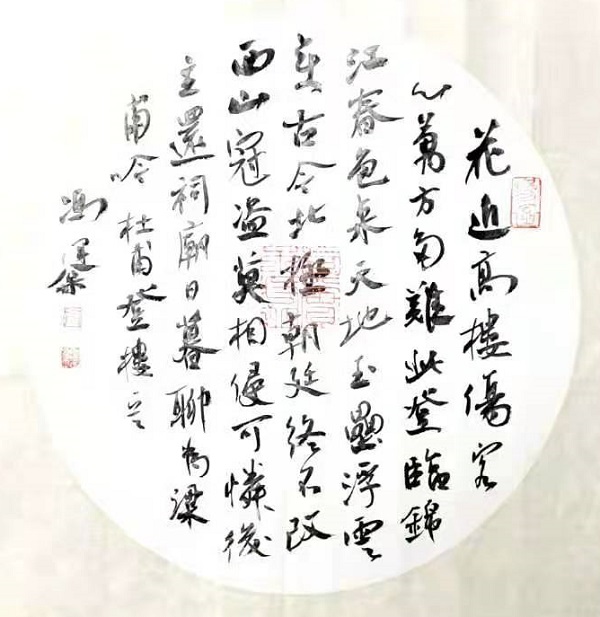 花近高樓傷客
心萬方多難此登臨錦
江春色来天地玉壘浮雲
變古今北極朝廷終不改
西山寇盗莫相侵可憐後
主還祠廟日暮聊為梁
甫吟杜甫登樓
馮